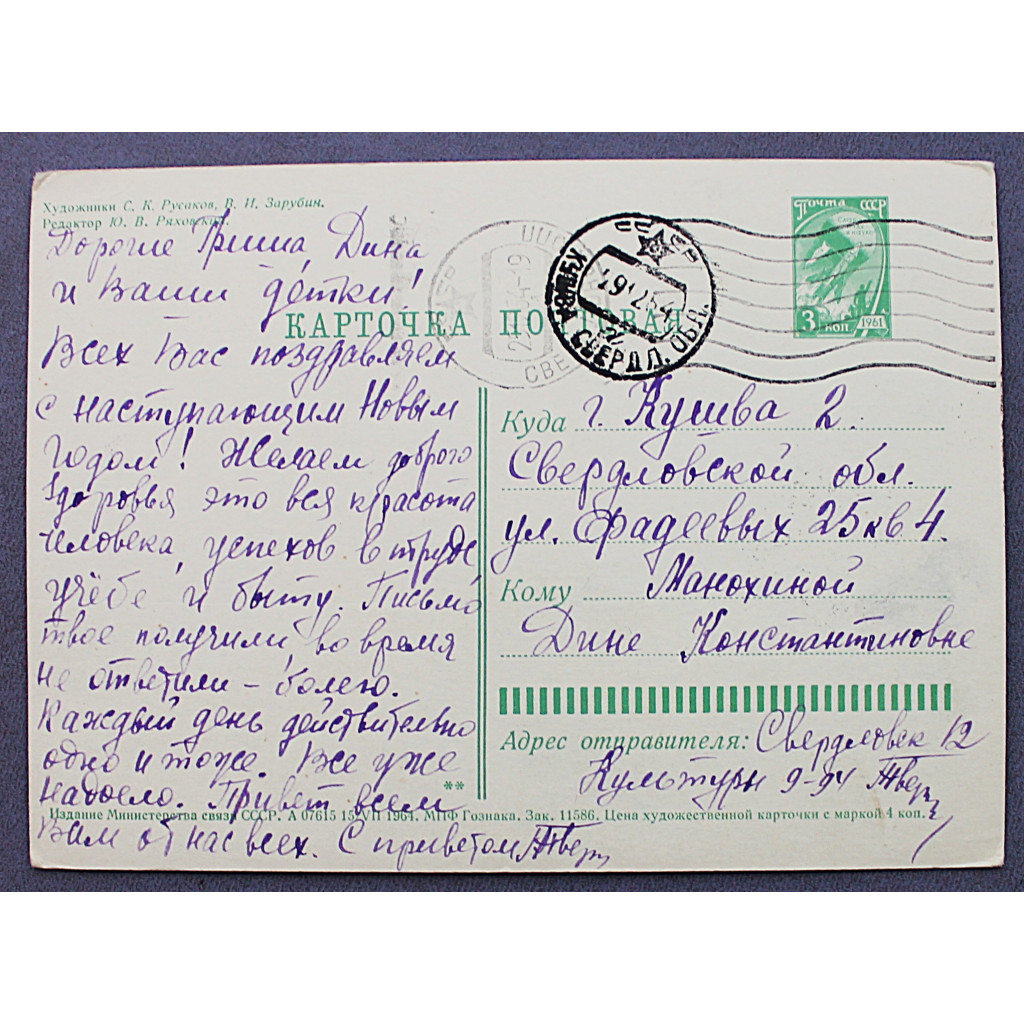 Художники С. К. Русаков, В. И. Зарубин.
Редактор Ю. В. Ряховский.
Дорогие Гриша, Дина
и Ваши детки!
Всех Вас поздравляем
с наступающим Новым
годом! Желаем доброго
здоровья это вся красота
человека, успехов в труде
учёбе и быту. Письмо
твое получили, во время
не ответили – болею.
Каждый день действительно
одно и тоже. Все уже
надоело. Привет всем
Вам от нас всех. С приветом
**
КАРТОЧКА ПОЧТОВАЯ
СССР
29 12 64
КУШВА
СВЕРДЛ. ОБЛ.
Почта СССР
3 коп
1961
Куда г. Кушва 2.
Свердловской обл.
ул. Фадеевых 25 кв 4.
Кому Манохиной
Дине Константиновне
Адрес отправителя: Свердловск 12
Культуры 9-94
Издание Министерства связи СССР. А 07615 15/VII 1964. МПФ Гознака. Зак. 11586. Цена художественной карточки с маркой 4 коп.